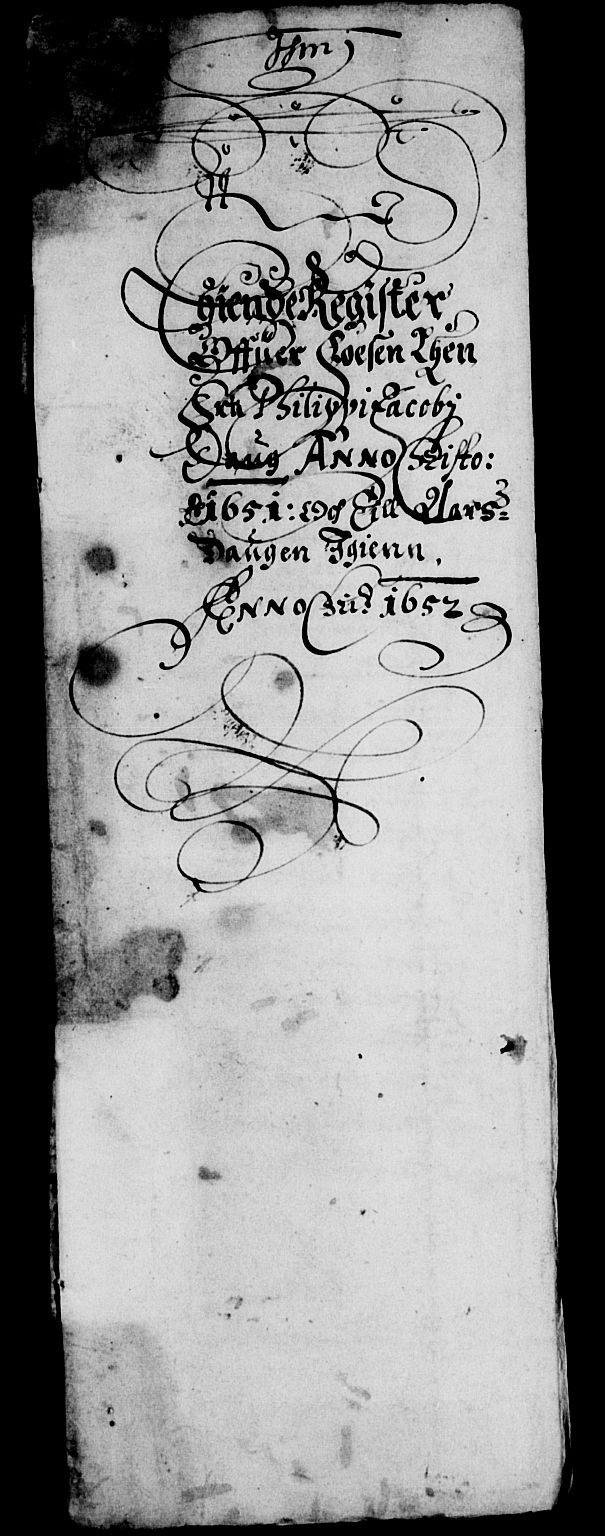 Tgiende Register
Offuer Loesen Lhen
Fra Philippi Jacobj
Daug Anno Christo:
1651: Och Till Aars=
Daugen Igienn,
Anno 1652